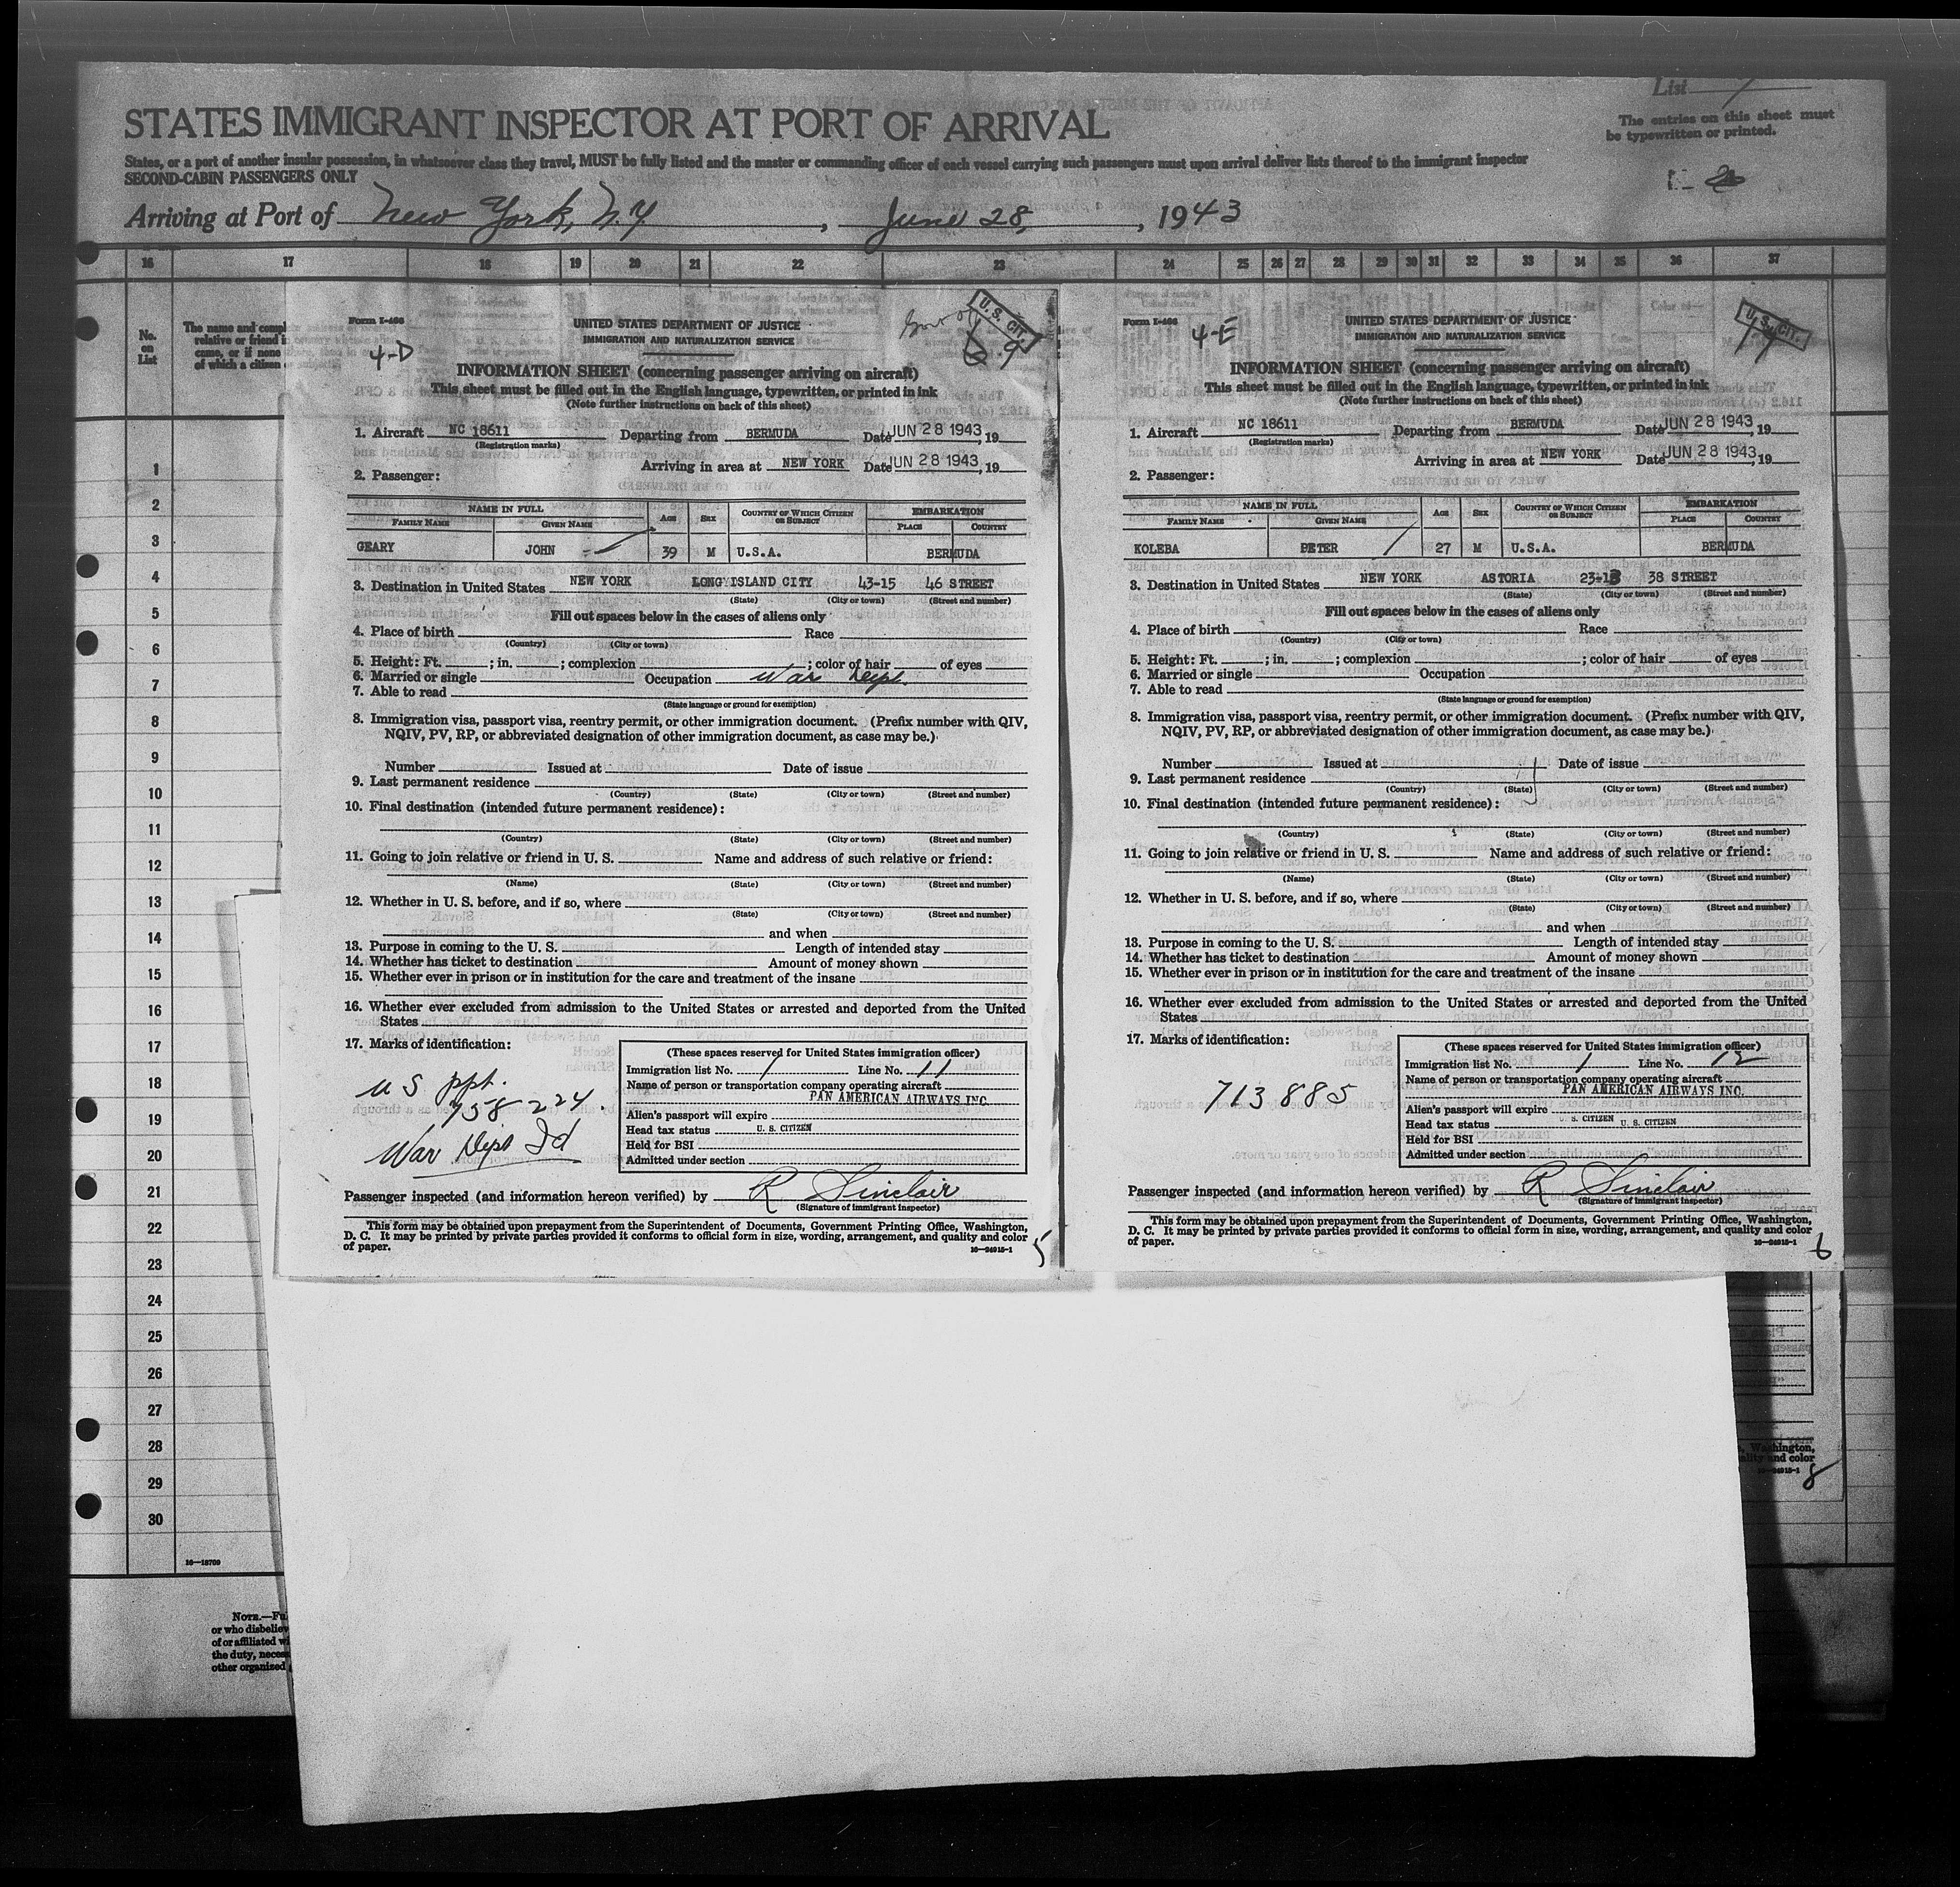 List 1
The entries on this sheet must
be typewritten or printed.
STATES IMMIGRANT INSPECTOR AT PORT OF ARRIVAL
States, or a port of another insular possession, in whatsoever class they travel, MUST be fully listed and the master or commanding officer of each vessel carrying such passengers must upon arrival deliver lists thereof to the immigrant inspector
SECOND-CABIN PASSENGERS ONLY
Arriving at Port of New York, N.Y. , June 28, , 1943
16 17 18 19 20 21 22 23 24 25 26 27 28 29 30 31 32 33 34 35 36 37
No. on List
The name and compl
relative or friend i
came, or if none
of which a citizen
1
2
3
4
5
6
7
8
9
10
11
12
13
14
15
16
17
18
19
20
21
22
23
24
25
26
27
28
29
30
16—18709
NOTE.—Fu
or who disbeliev
of or affiliated wi
the duty, neces
other organized
Form I-466
4-D
U. S. CIT.
9
UNITED STATES DEPARTMENT OF JUSTICE
IMMIGRATION AND NATURALIZATION SERVICE
INFORMATION SHEET (concerning passenger arriving on aircraft)
This sheet must be filled out in the English language, typewritten, or printed in ink
(Note further instructions on back of this sheet)
1. Aircraft NC 18611 Departing from BERMUDA Date JUN 28 1943, 19
(Registration marks)
Arriving in area at NEW YORK Date JUN 28 1943, 19
2. Passenger:
NAME IN FULL AGE SEX COUNTRY OF WHICH CITIZEN OR SUBJECT EMBARKATION
FAMILY NAME GIVEN NAME PLACE COUNTRY
GEARY JOHN 39 M U.S.A. BERMUDA
3. Destination in United States NEW YORK LONG ISLAND CITY 43-15 46 STREET
(State) (City or town) (Street and number)
Fill out spaces below in the cases of aliens only
4. Place of birth Race
(Country) (City or town)
5. Height: Ft. ; in. ; complexion ; color of hair of eyes
6. Married or single Occupation War Dept.
7. Able to read
(State language or ground for exemption)
8. Immigration visa, passport visa, reentry permit, or other immigration document. (Prefix number with QIV,
NQIV, PV, RP, or abbreviated designation of other immigration document, as case may be.)
Number Issued at Date of issue
9. Last permanent residence
(Country) (State) (City or town) (Street and number)
10. Final destination (intended future permanent residence):
(Country) (State) (City or town) (Street and number)
11. Going to join relative or friend in U. S. Name and address of such relative or friend:
(Name) (State) (City or town) (Street and number)
12. Whether in U. S. before, and if so, where
(State) (City or town) (Street and number)
and when
13. Purpose in coming to the U. S. Length of intended stay
14. Whether has ticket to destination Amount of money shown
15. Whether ever in prison or in institution for the care and treatment of the insane
16. Whether ever excluded from admission to the United States or arrested and deported from the United
States
17. Marks of identification:
U S ppt.
758224
War Dept Id
(These spaces reserved for United States immigration officer)
Immigration list No. 1 Line No. 11
Name of person or transportation company operating aircraft
PAN AMERICAN AIRWAYS INC.
Alien's passport will expire
Head tax status U. S. CITIZEN
Held for BSI
Admitted under section
Passenger inspected (and information hereon verified) by R Sinclair
(Signature of immigrant inspector)
This form may be obtained upon prepayment from the Superintendent of Documents, Government Printing Office, Washington,
D. C. It may be printed by private parties provided it conforms to official form in size, wording, arrangement, and quality and color
of paper.
16—24915-1
5
Form I-466
4-E
U. S. CIT.
UNITED STATES DEPARTMENT OF JUSTICE
IMMIGRATION AND NATURALIZATION SERVICE
INFORMATION SHEET (concerning passenger arriving on aircraft)
This sheet must be filled out in the English language, typewritten, or printed in ink
(Note further instructions on back of this sheet)
1. Aircraft NC 18611 Departing from BERMUDA Date JUN 28 1943, 19
(Registration marks)
Arriving in area at NEW YORK Date JUN 28 1943, 19
2. Passenger:
NAME IN FULL AGE SEX COUNTRY OF WHICH CITIZEN OR SUBJECT EMBARKATION
FAMILY NAME GIVEN NAME PLACE COUNTRY
KOLEBA PETER 27 M U.S.A. BERMUDA
3. Destination in United States NEW YORK ASTORIA 23-13 38 STREET
(State) (City or town) (Street and number)
Fill out spaces below in the cases of aliens only
4. Place of birth Race
(Country) (City or town)
5. Height: Ft. ; in. ; complexion ; color of hair of eyes
6. Married or single Occupation
7. Able to read
(State language or ground for exemption)
8. Immigration visa, passport visa, reentry permit, or other immigration document. (Prefix number with QIV,
NQIV, PV, RP, or abbreviated designation of other immigration document, as case may be.)
Number Issued at Date of issue
9. Last permanent residence
(Country) (State) (City or town) (Street and number)
10. Final destination (intended future permanent residence):
(Country) (State) (City or town) (Street and number)
11. Going to join relative or friend in U. S. Name and address of such relative or friend:
(Name) (State) (City or town) (Street and number)
12. Whether in U. S. before, and if so, where
(State) (City or town) (Street and number)
and when
13. Purpose in coming to the U. S. Length of intended stay
14. Whether has ticket to destination Amount of money shown
15. Whether ever in prison or in institution for the care and treatment of the insane
16. Whether ever excluded from admission to the United States or arrested and deported from the United
States
17. Marks of identification:
713885
(These spaces reserved for United States immigration officer)
Immigration list No. 1 Line No. 12
Name of person or transportation company operating aircraft
PAN AMERICAN AIRWAYS INC.
Alien's passport will expire
U. S. CITIZEN
Head tax status U. S. CITIZEN
Held for BSI
Admitted under section
Passenger inspected (and information hereon verified) by R Sinclair
(Signature of immigrant inspector)
This form may be obtained upon prepayment from the Superintendent of Documents, Government Printing Office, Washington,
D. C. It may be printed by private parties provided it conforms to official form in size, wording, arrangement, and quality and color
of paper.
16—24915-1
6
Washington,
ality and color
16—24915-1
8